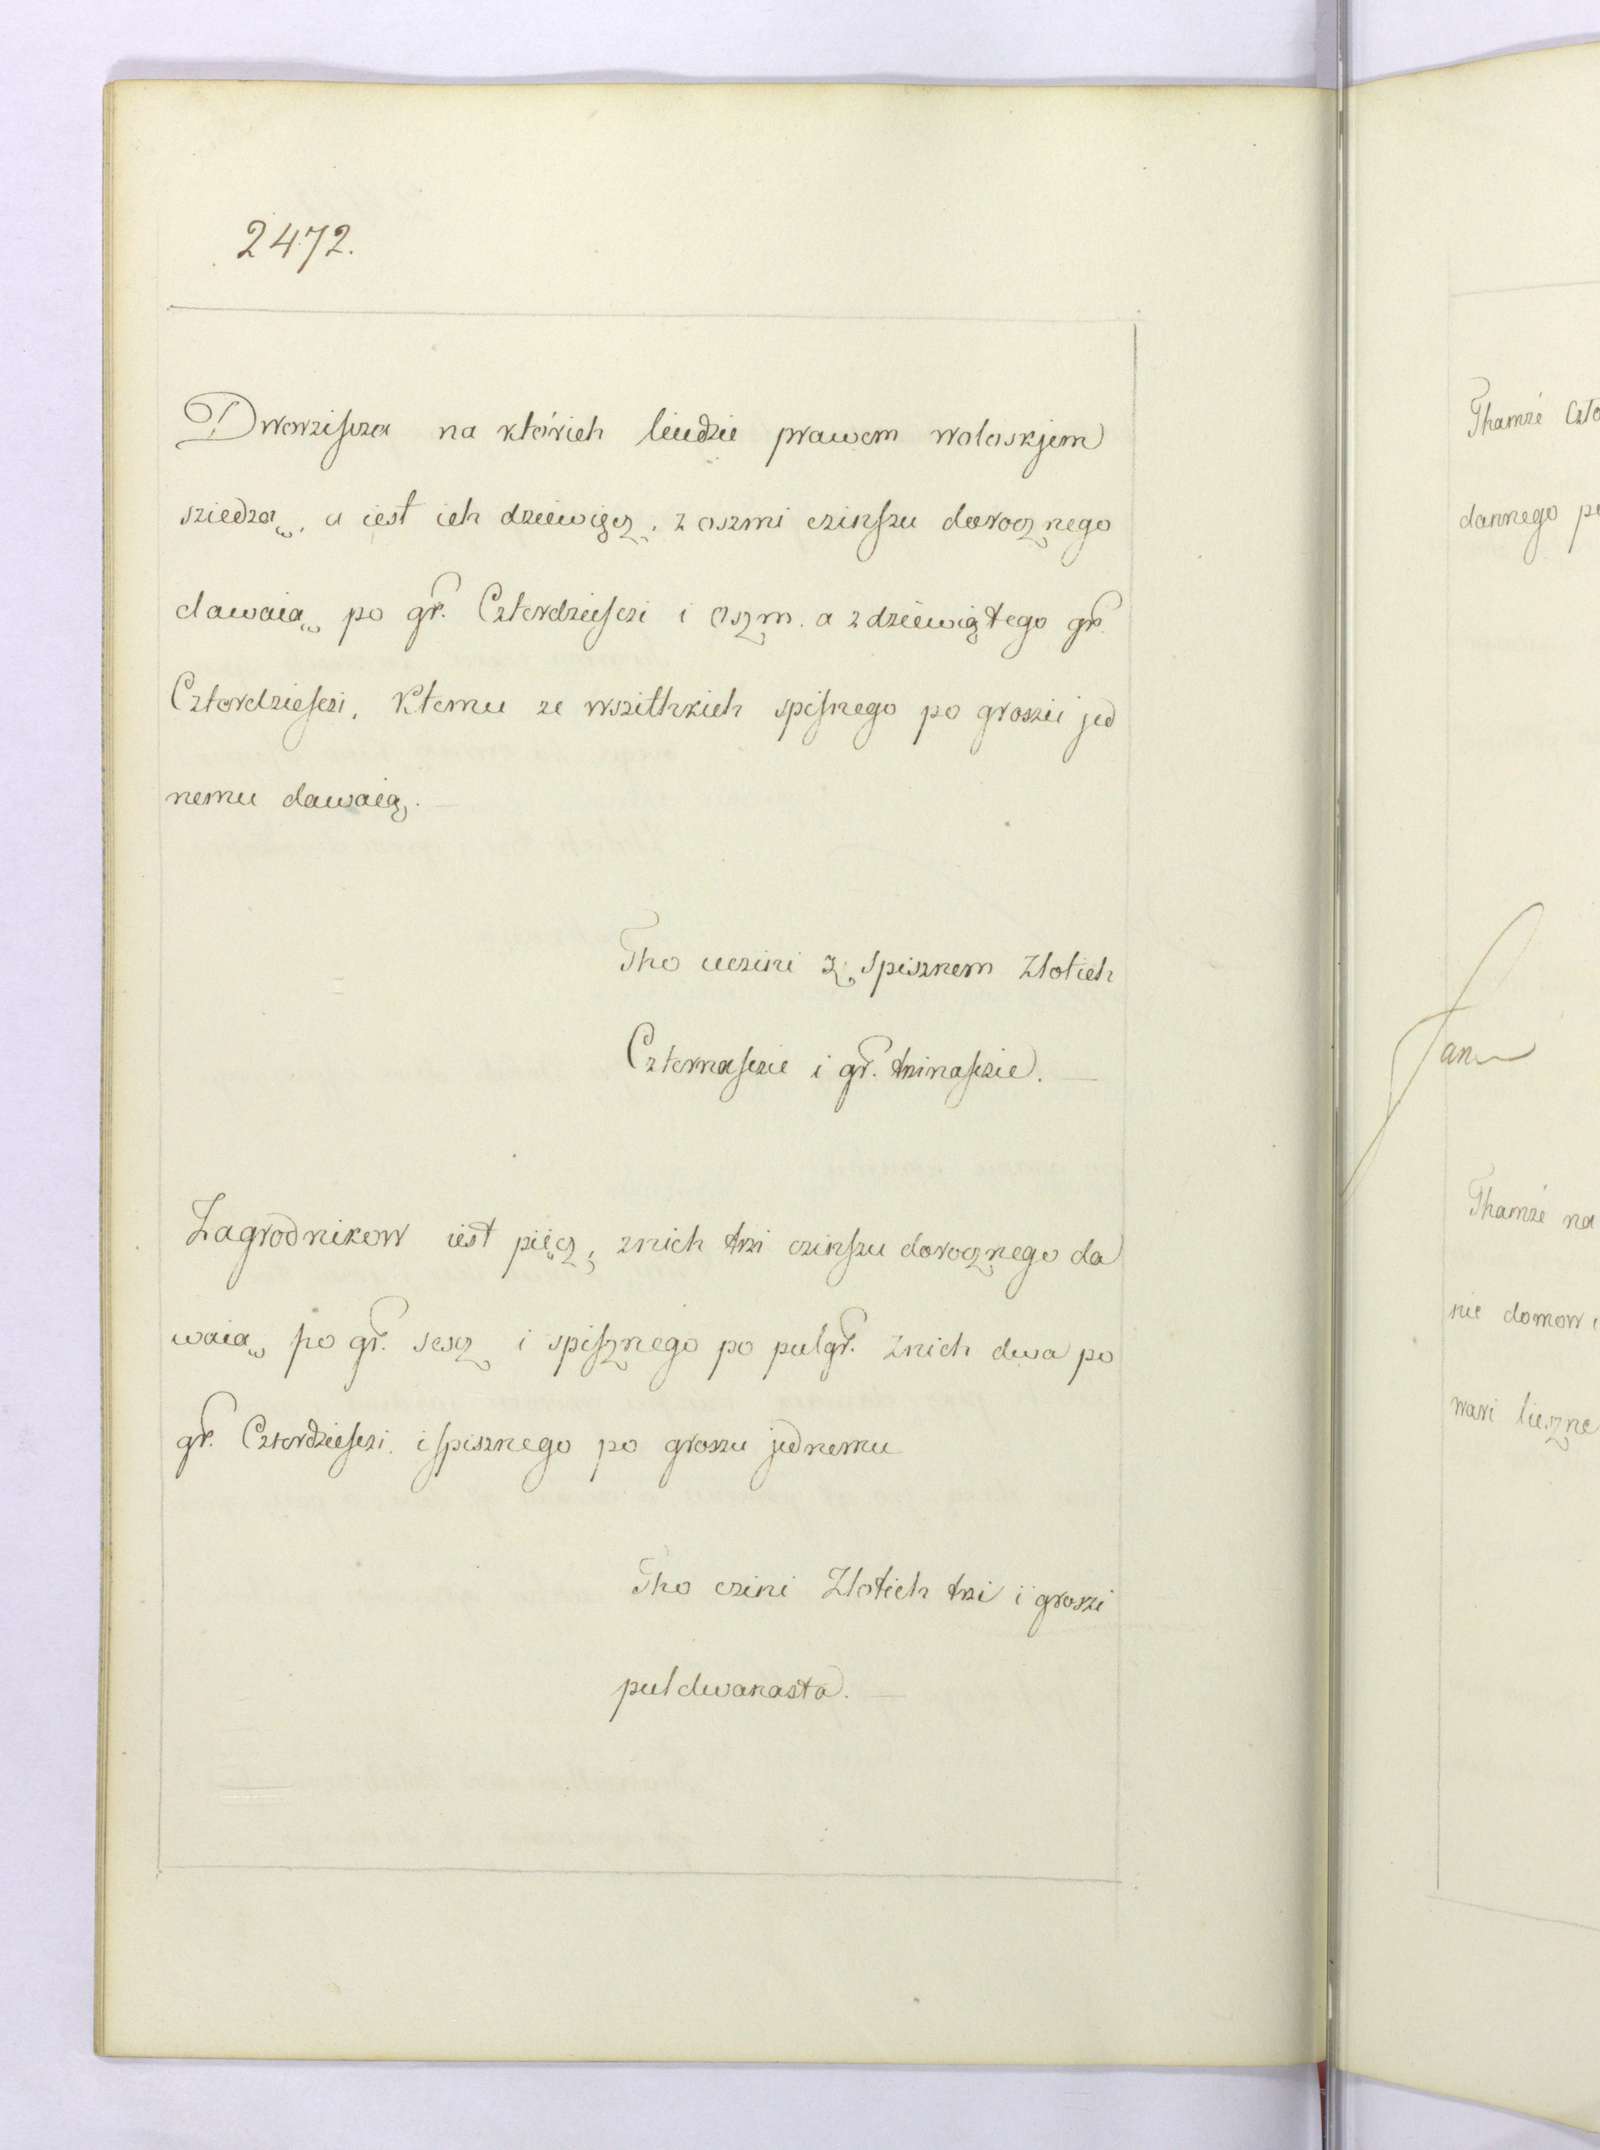 2472.
Dworziscza na którich liudzie prawem woloskjem
sziedzą, a iest ich dziewięcz, z oszmi czinszu dorocznego
dawaią po gr. Czterdziesczi i oszm. a z dziewiątego gr.
Czterdziesczi, Ktemu ze wszithkich spisnego po groszu jed
nemu dawaią.
Tho uczini z spisznem Złotich
Czternascie i gr. trzinascie.
Zagrodnikow iest pięcz, znich trzi czinszu dorocznego da
waią po gr. sescz i spisznego po pulgr. znich dwa po
gr. Czterdziesczi i spisznego po groszu jednemu
Tho czini Złotich trzi i groszi
puldwanasta.
Thamże Czło
dannego po
Jan
Thamże na
nie domow i
wari liczne